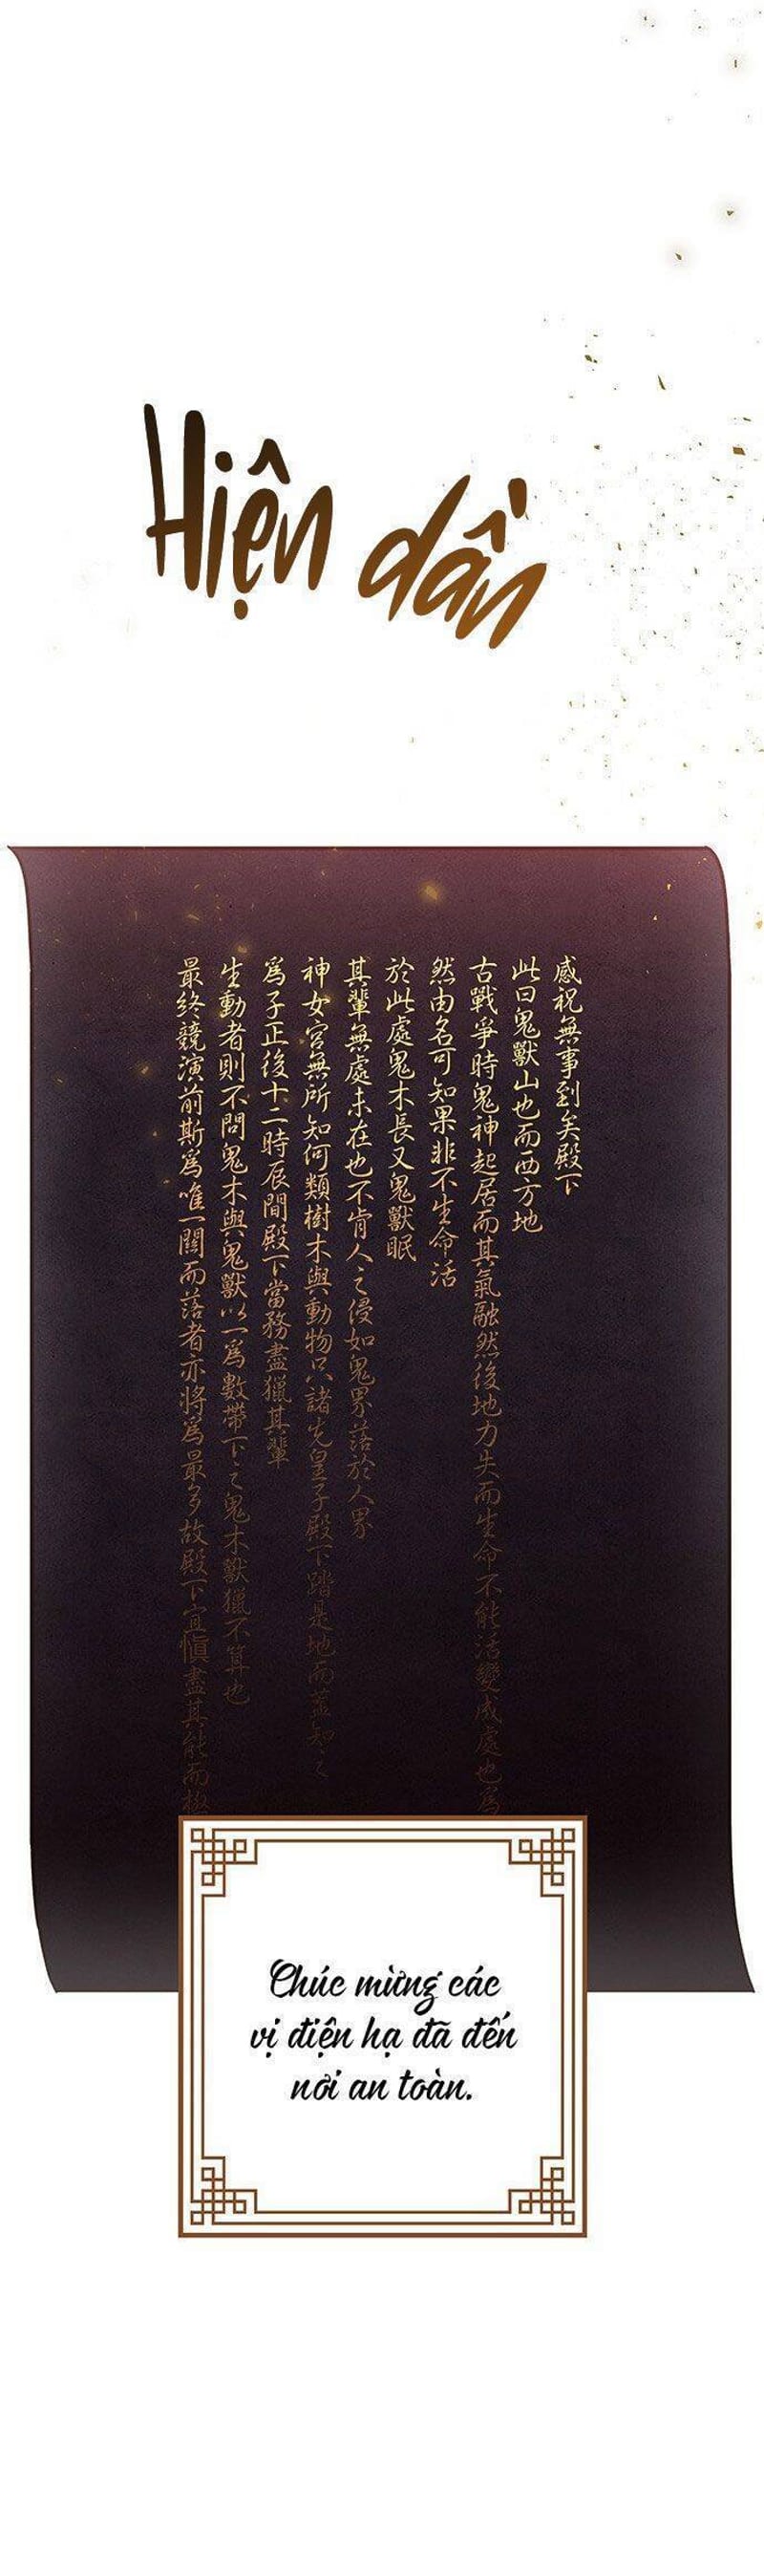 Hiện dần
感祝無事到矣殿下
此曰鬼獸山也而西方地
古戰爭時鬼神起居而其氣融然後地力失而生命不能活變成處也爲
然由名可知果非不生命活
於此處鬼木長又鬼獸眠
其輩無處未在也不肯人之侵如鬼界落於人界
神女宮無所知何類樹木與動物只諸先皇子殿下踏是地而蓋知之
爲子正後十二時辰間殿下當務盡獵其輩
生動者則不問鬼木與鬼獸以一爲數帶下之鬼木獸獵不算也
最終競演前斯爲唯一關而落者亦將爲最多故殿下宜愼盡其能而極
Chúc mừng các
vị điện hạ đã đến
nơi an toàn.